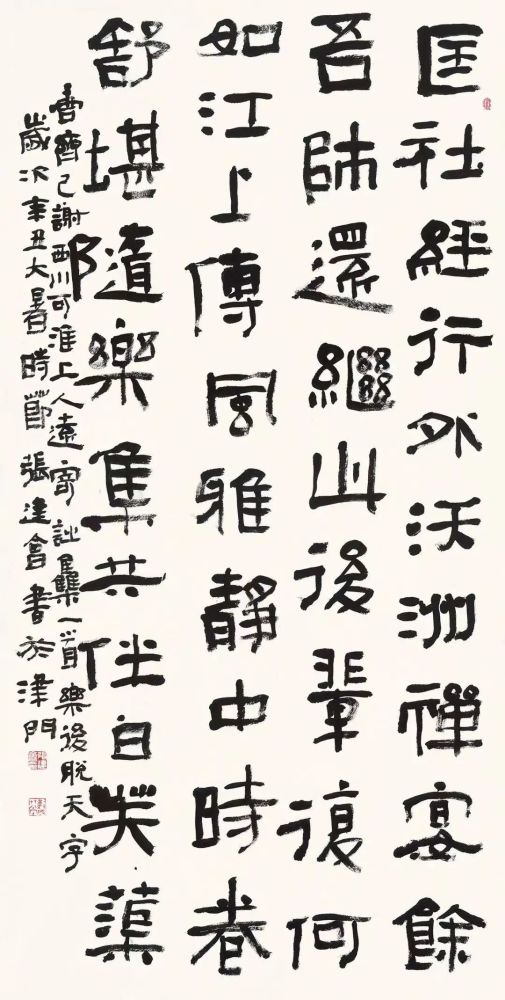 匡社經行外沃洲禪宴餘
吾師還繼此後輩復何
如江上傳風雅靜中時卷
舒堪隨樂集共伴白芙蕖
唐齊己謝西川可准上人遠寄詩集一首樂後脫天字
歲次辛丑大暑時節張建會書於津門